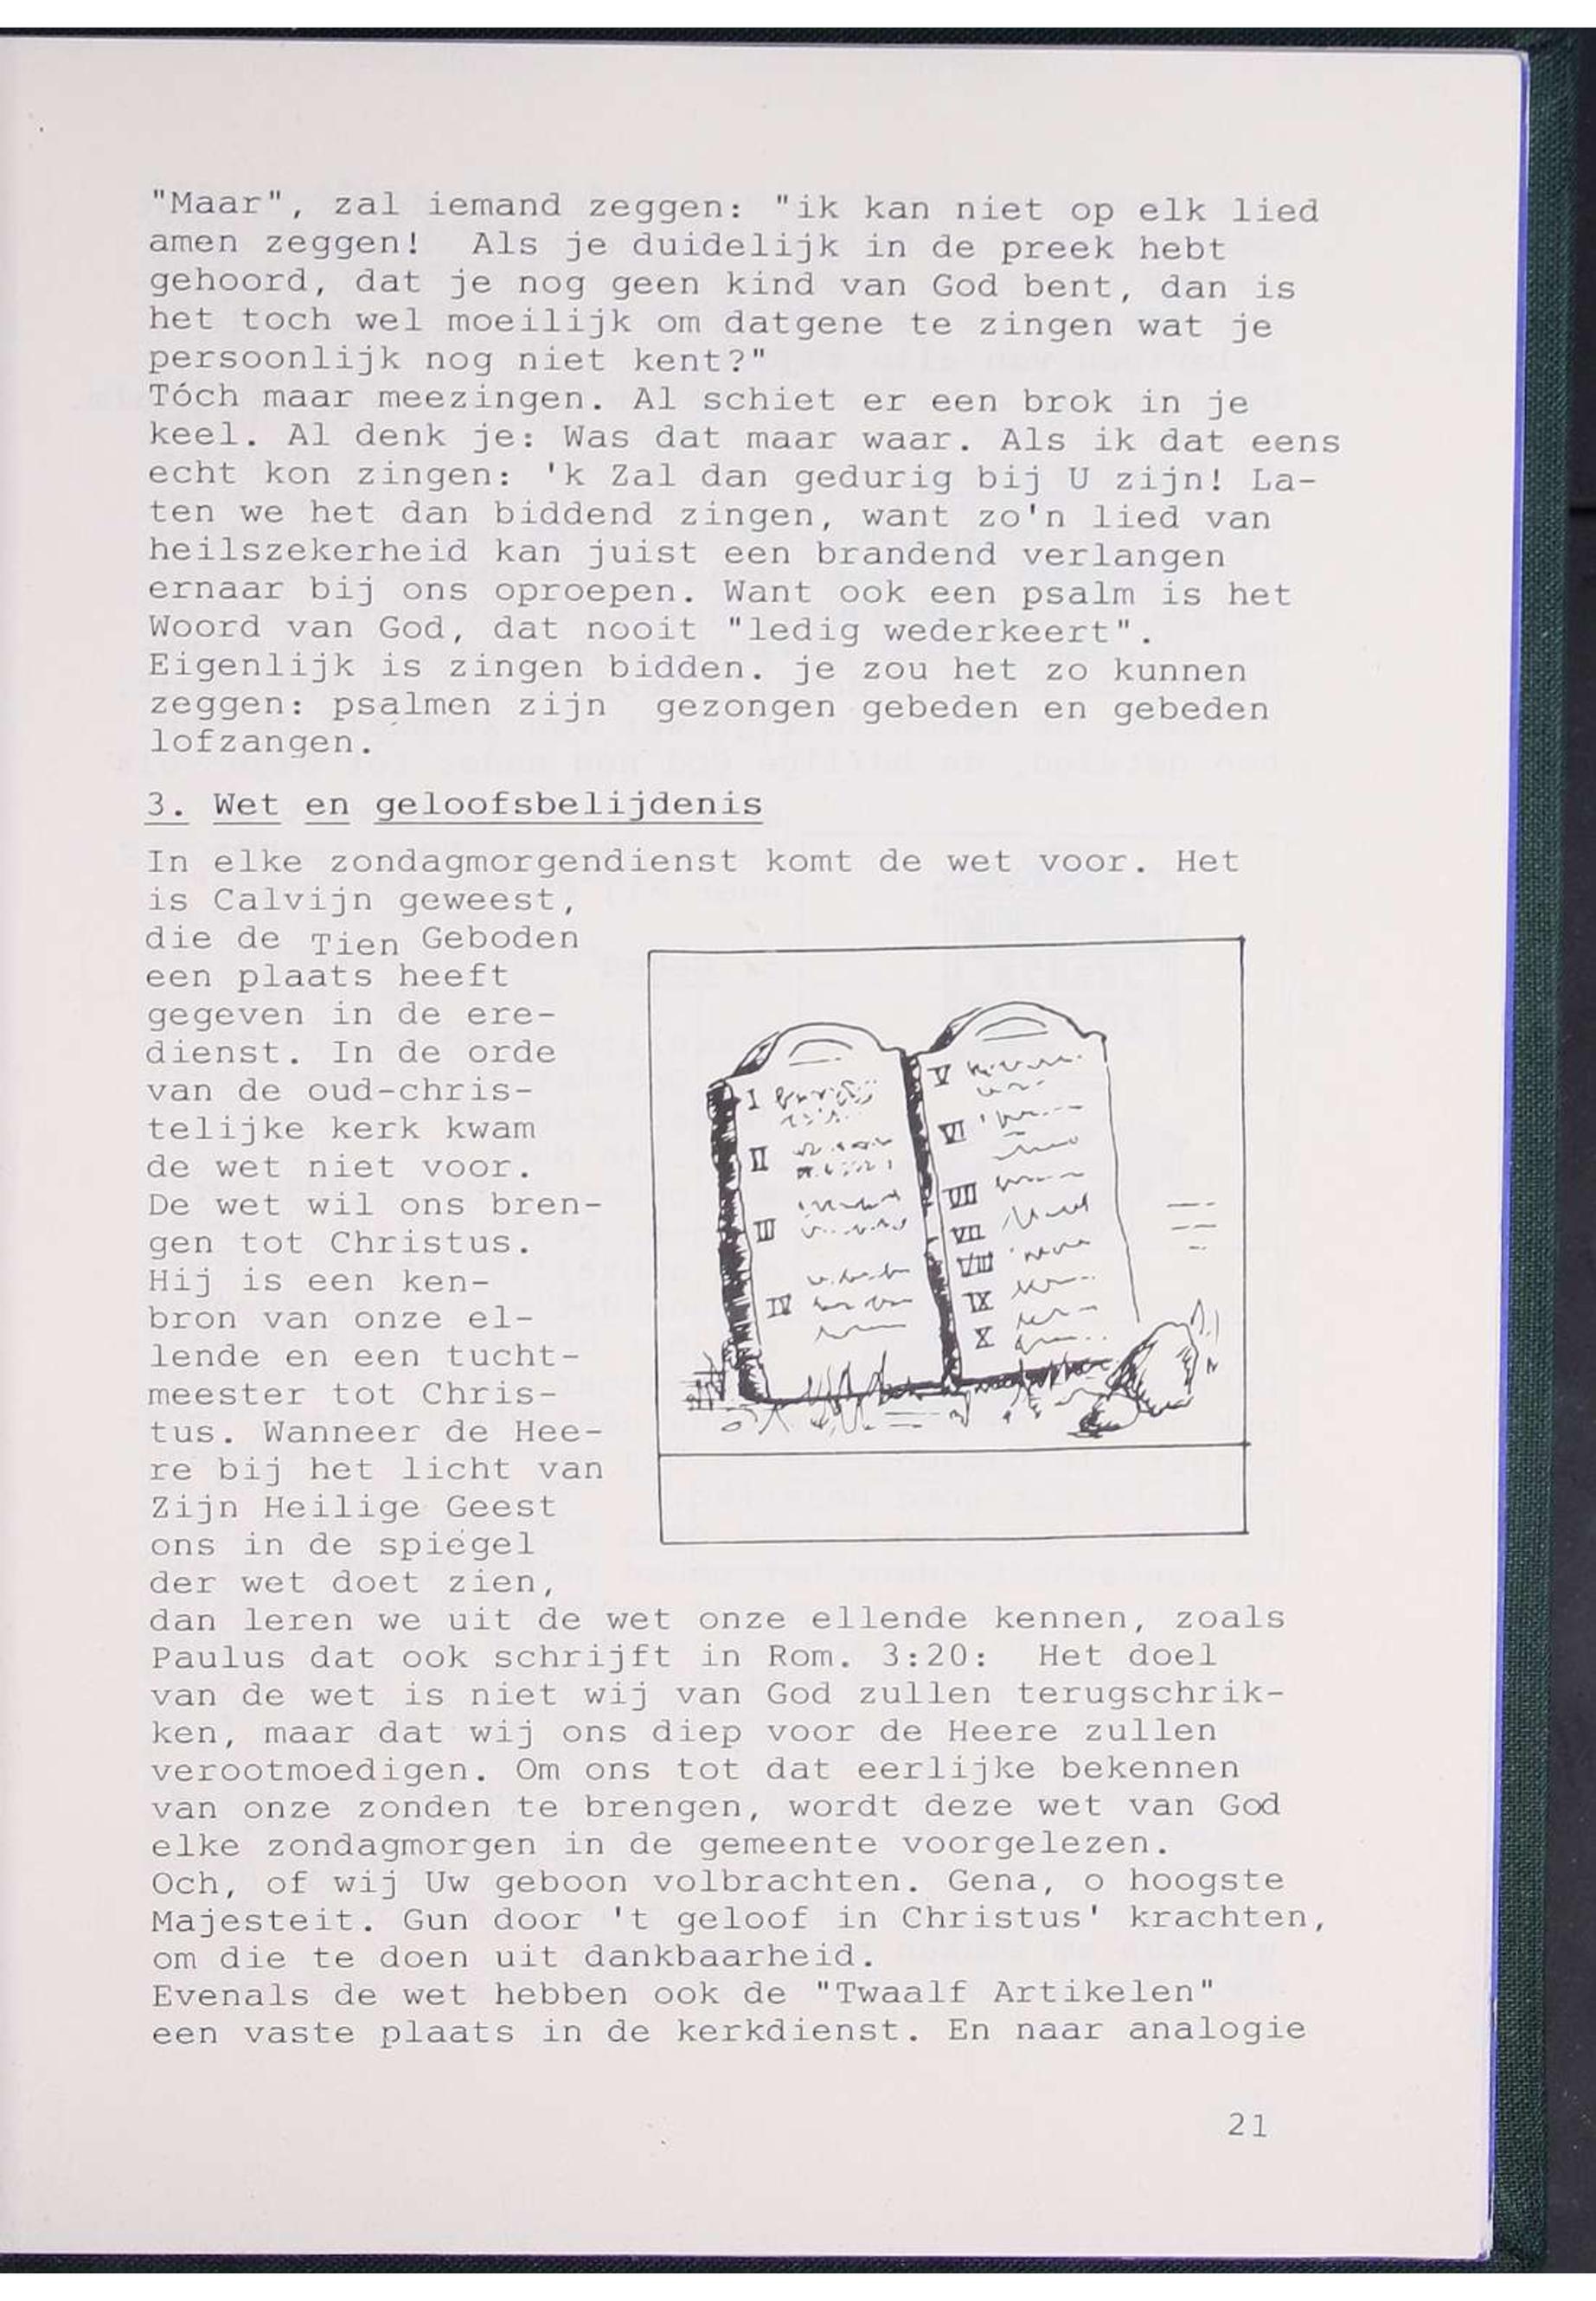 "Maar", zal iemand zeggen: "ik kan niet op elk lied
amen zeggen!  Als je duidelijk in de preek hebt
gehoord, dat je nog geen kind van God bent, dan is
het toch wel moeilijk om datgene te zingen wat je
persoonlijk nog niet kent?"
Tóch maar meezingen. Al schiet er een brok in je
keel. Al denk je: Was dat maar waar. Als ik dat eens
echt kon zingen: 'k Zal dan gedurig bij U zijn! La-
ten we het dan biddend zingen, want zo'n lied van
heilszekerheid kan juist een brandend verlangen
ernaar bij ons oproepen. Want ook een psalm is het
Woord van God, dat nooit "ledig wederkeert".
Eigenlijk is zingen bidden. je zou het zo kunnen
zeggen: psalmen zijn  gezongen gebeden en gebeden
lofzangen.
3. Wet en geloofsbelijdenis
In elke zondagmorgendienst komt de wet voor. Het
is Calvijn geweest,
die de Tien Geboden
een plaats heeft
gegeven in de ere-
dienst. In de orde
van de oud-chris-
telijke kerk kwam
de wet niet voor.
De wet wil ons bren-
gen tot Christus.
Hij is een ken-
bron van onze el-
lende en een tucht-
meester tot Chris-
tus. Wanneer de Hee-
re bij het licht van
Zijn Heilige Geest
ons in de spiegel
der wet doet zien,
I
II
III
IV
V
VI
VII
VII
VIII
IX
X
dan leren we uit de wet onze ellende kennen, zoals
Paulus dat ook schrijft in Rom. 3:20:  Het doel
van de wet is niet wij van God zullen terugschrik-
ken, maar dat wij ons diep voor de Heere zullen
verootmoedigen. Om ons tot dat eerlijke bekennen
van onze zonden te brengen, wordt deze wet van God
elke zondagmorgen in de gemeente voorgelezen.
Och, of wij Uw geboon volbrachten. Gena, o hoogste
Majesteit. Gun door 't geloof in Christus' krachten,
om die te doen uit dankbaarheid.
Evenals de wet hebben ook de "Twaalf Artikelen"
een vaste plaats in de kerkdienst. En naar analogie
21